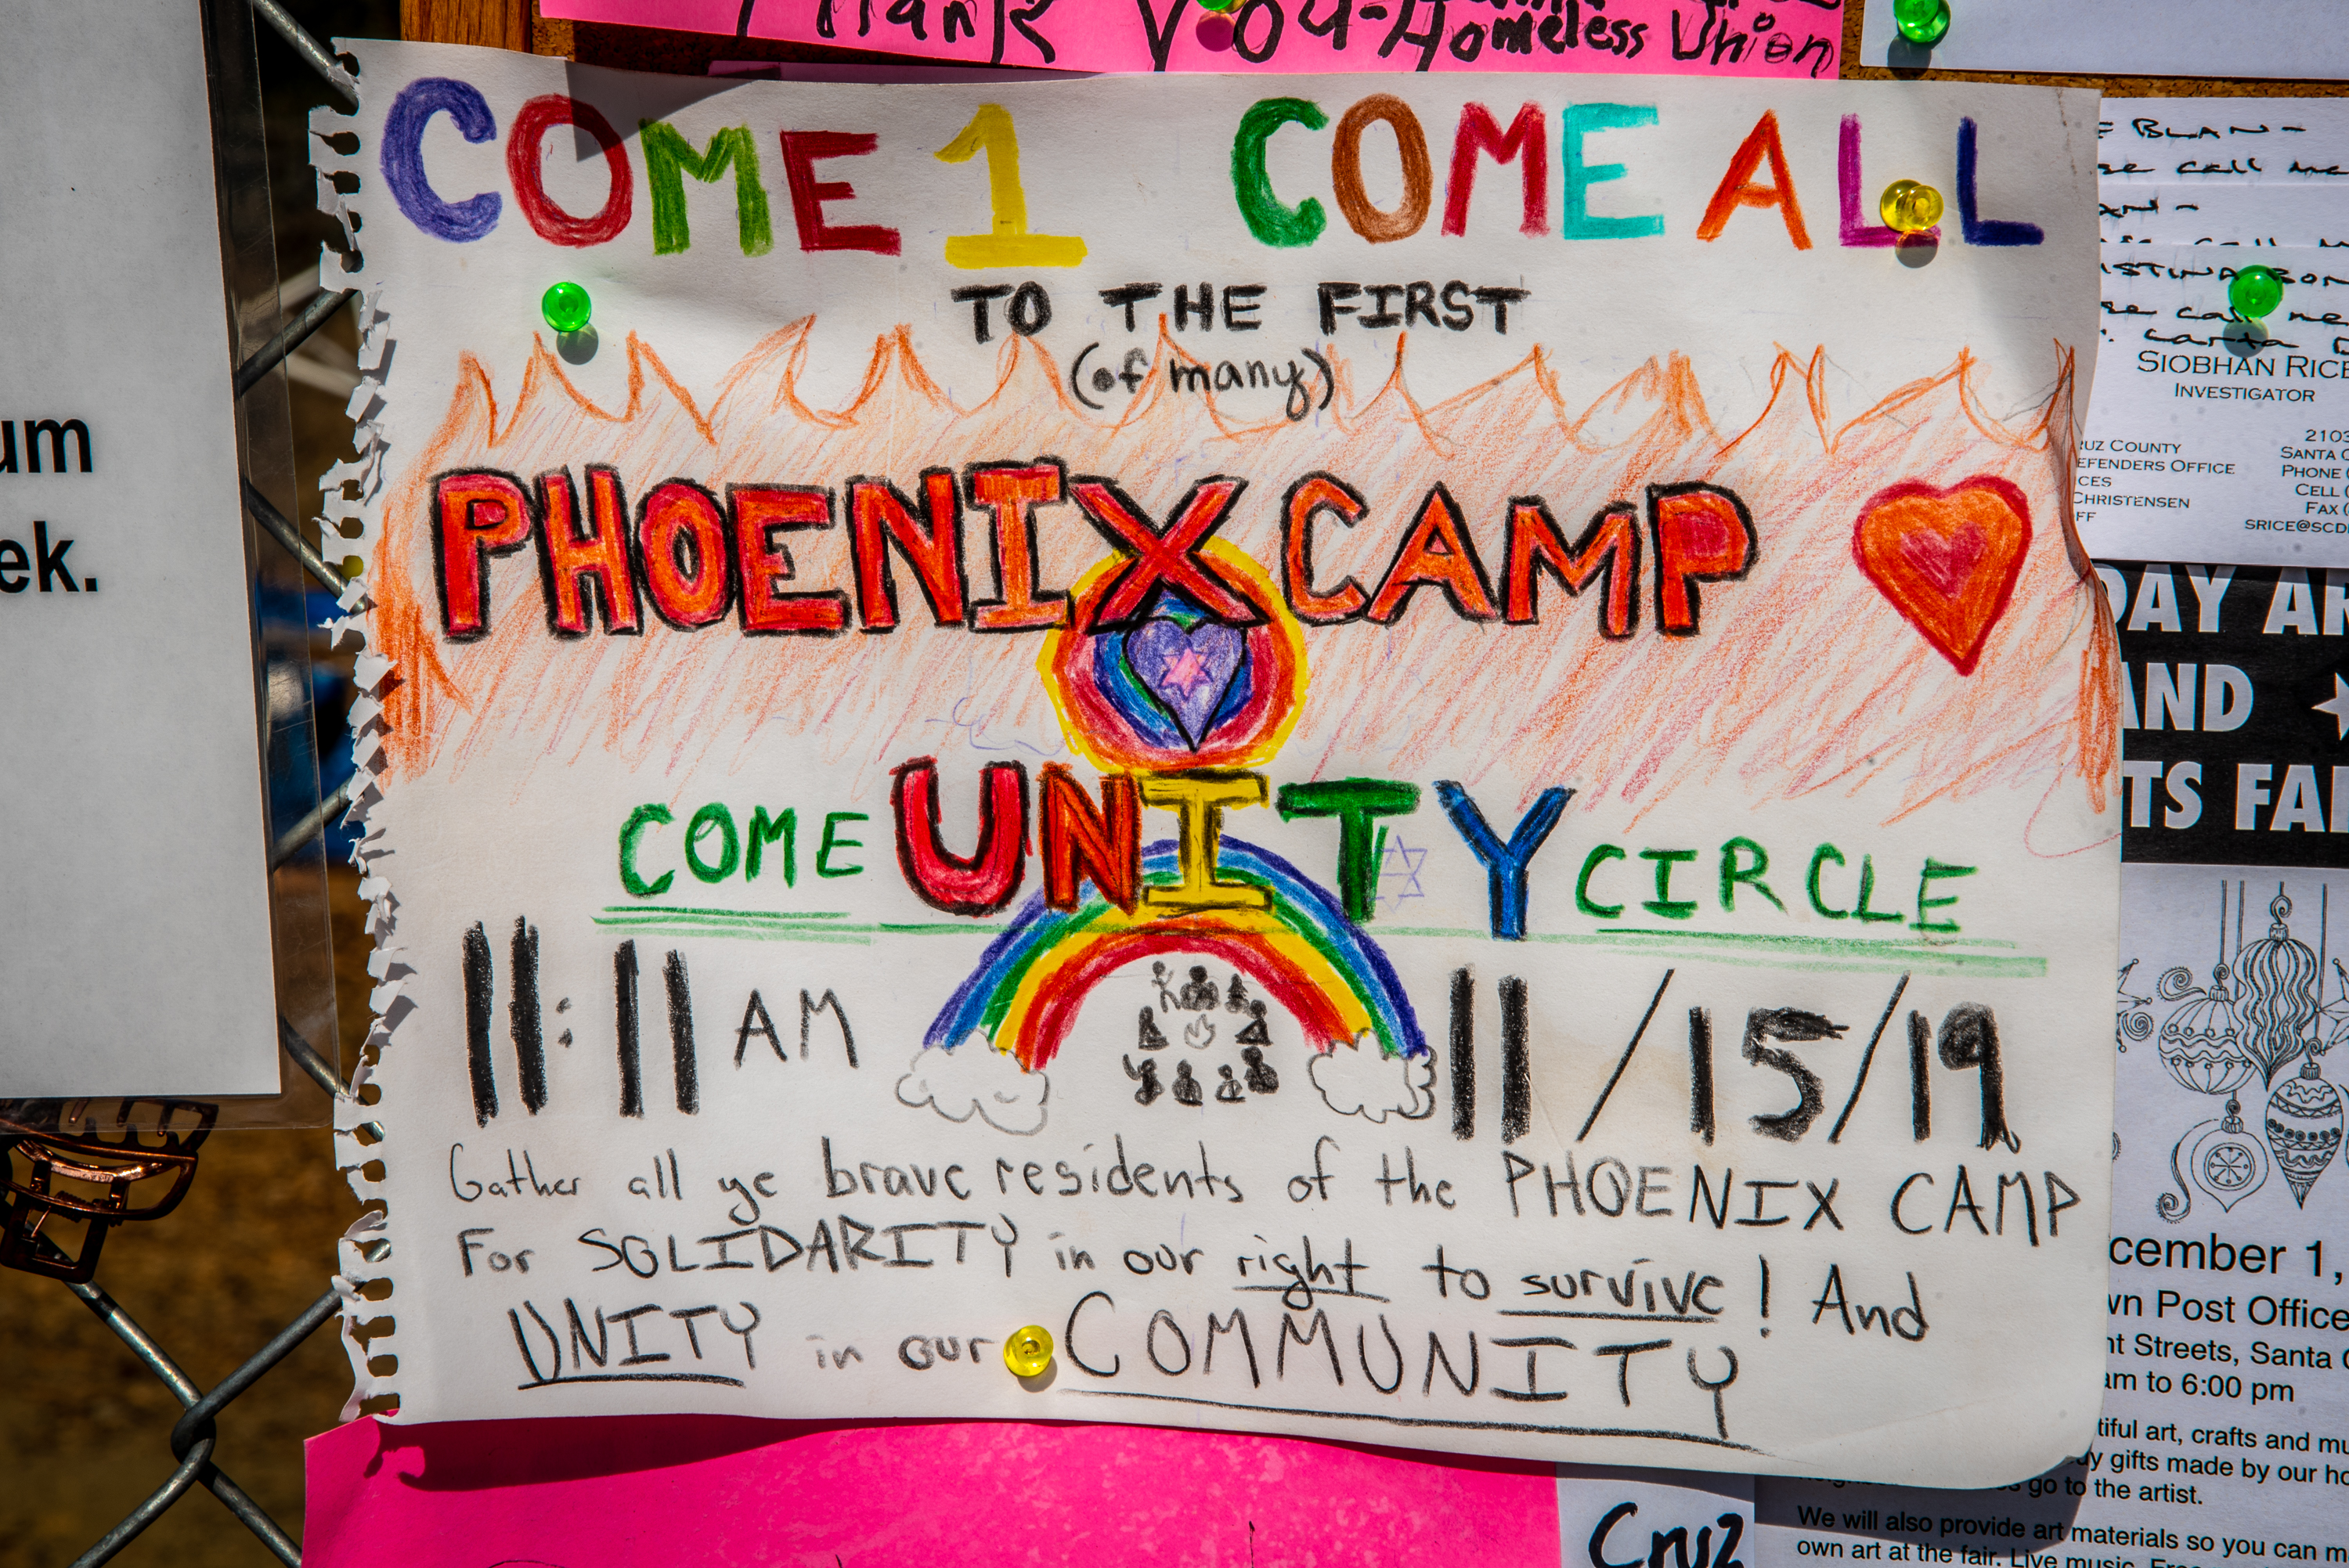 Thank You - Homeless Union
COME 1 COME ALL
TO THE FIRST
(of many)
PHOENIX CAMP
COME UNITY CIRCLE
11:11 AM 11/15/19
Gather all ye brave residents of the PHOENIX CAMP
For SOLIDARITY in our right to survive! And
UNITY in our COMMUNITY
um
ek.
BLAN-
call me
AN-
call
BON
call me
SIOBHAN RICE
INVESTIGATOR
RUZ COUNTY
EFENDERS OFFICE
CES
CHRISTENSEN
FF
2103
SANTA C
PHONE (
CELL (
FAX (
SRICE@SCD
DAY AR
AND
TS FAI
cember 1,
wn Post Office
nt Streets, Santa C
am to 6:00 pm
tiful art, crafts and mu
uy gifts made by our ho
go to the artist.
We will also provide art materials so you can m
own art at the fair. Live music.
Cruz